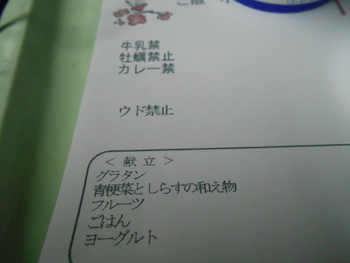 ご飯
牛乳禁
牡蠣禁止
カレー禁
ウド禁止
＜ 献 立 ＞
グラタン
青梗菜としらすの和え物
フルーツ
ごはん
ヨーグルト